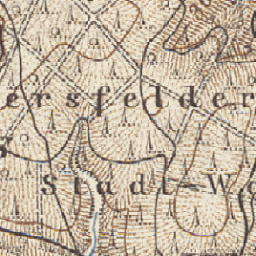 ersfelder
Stadt-W